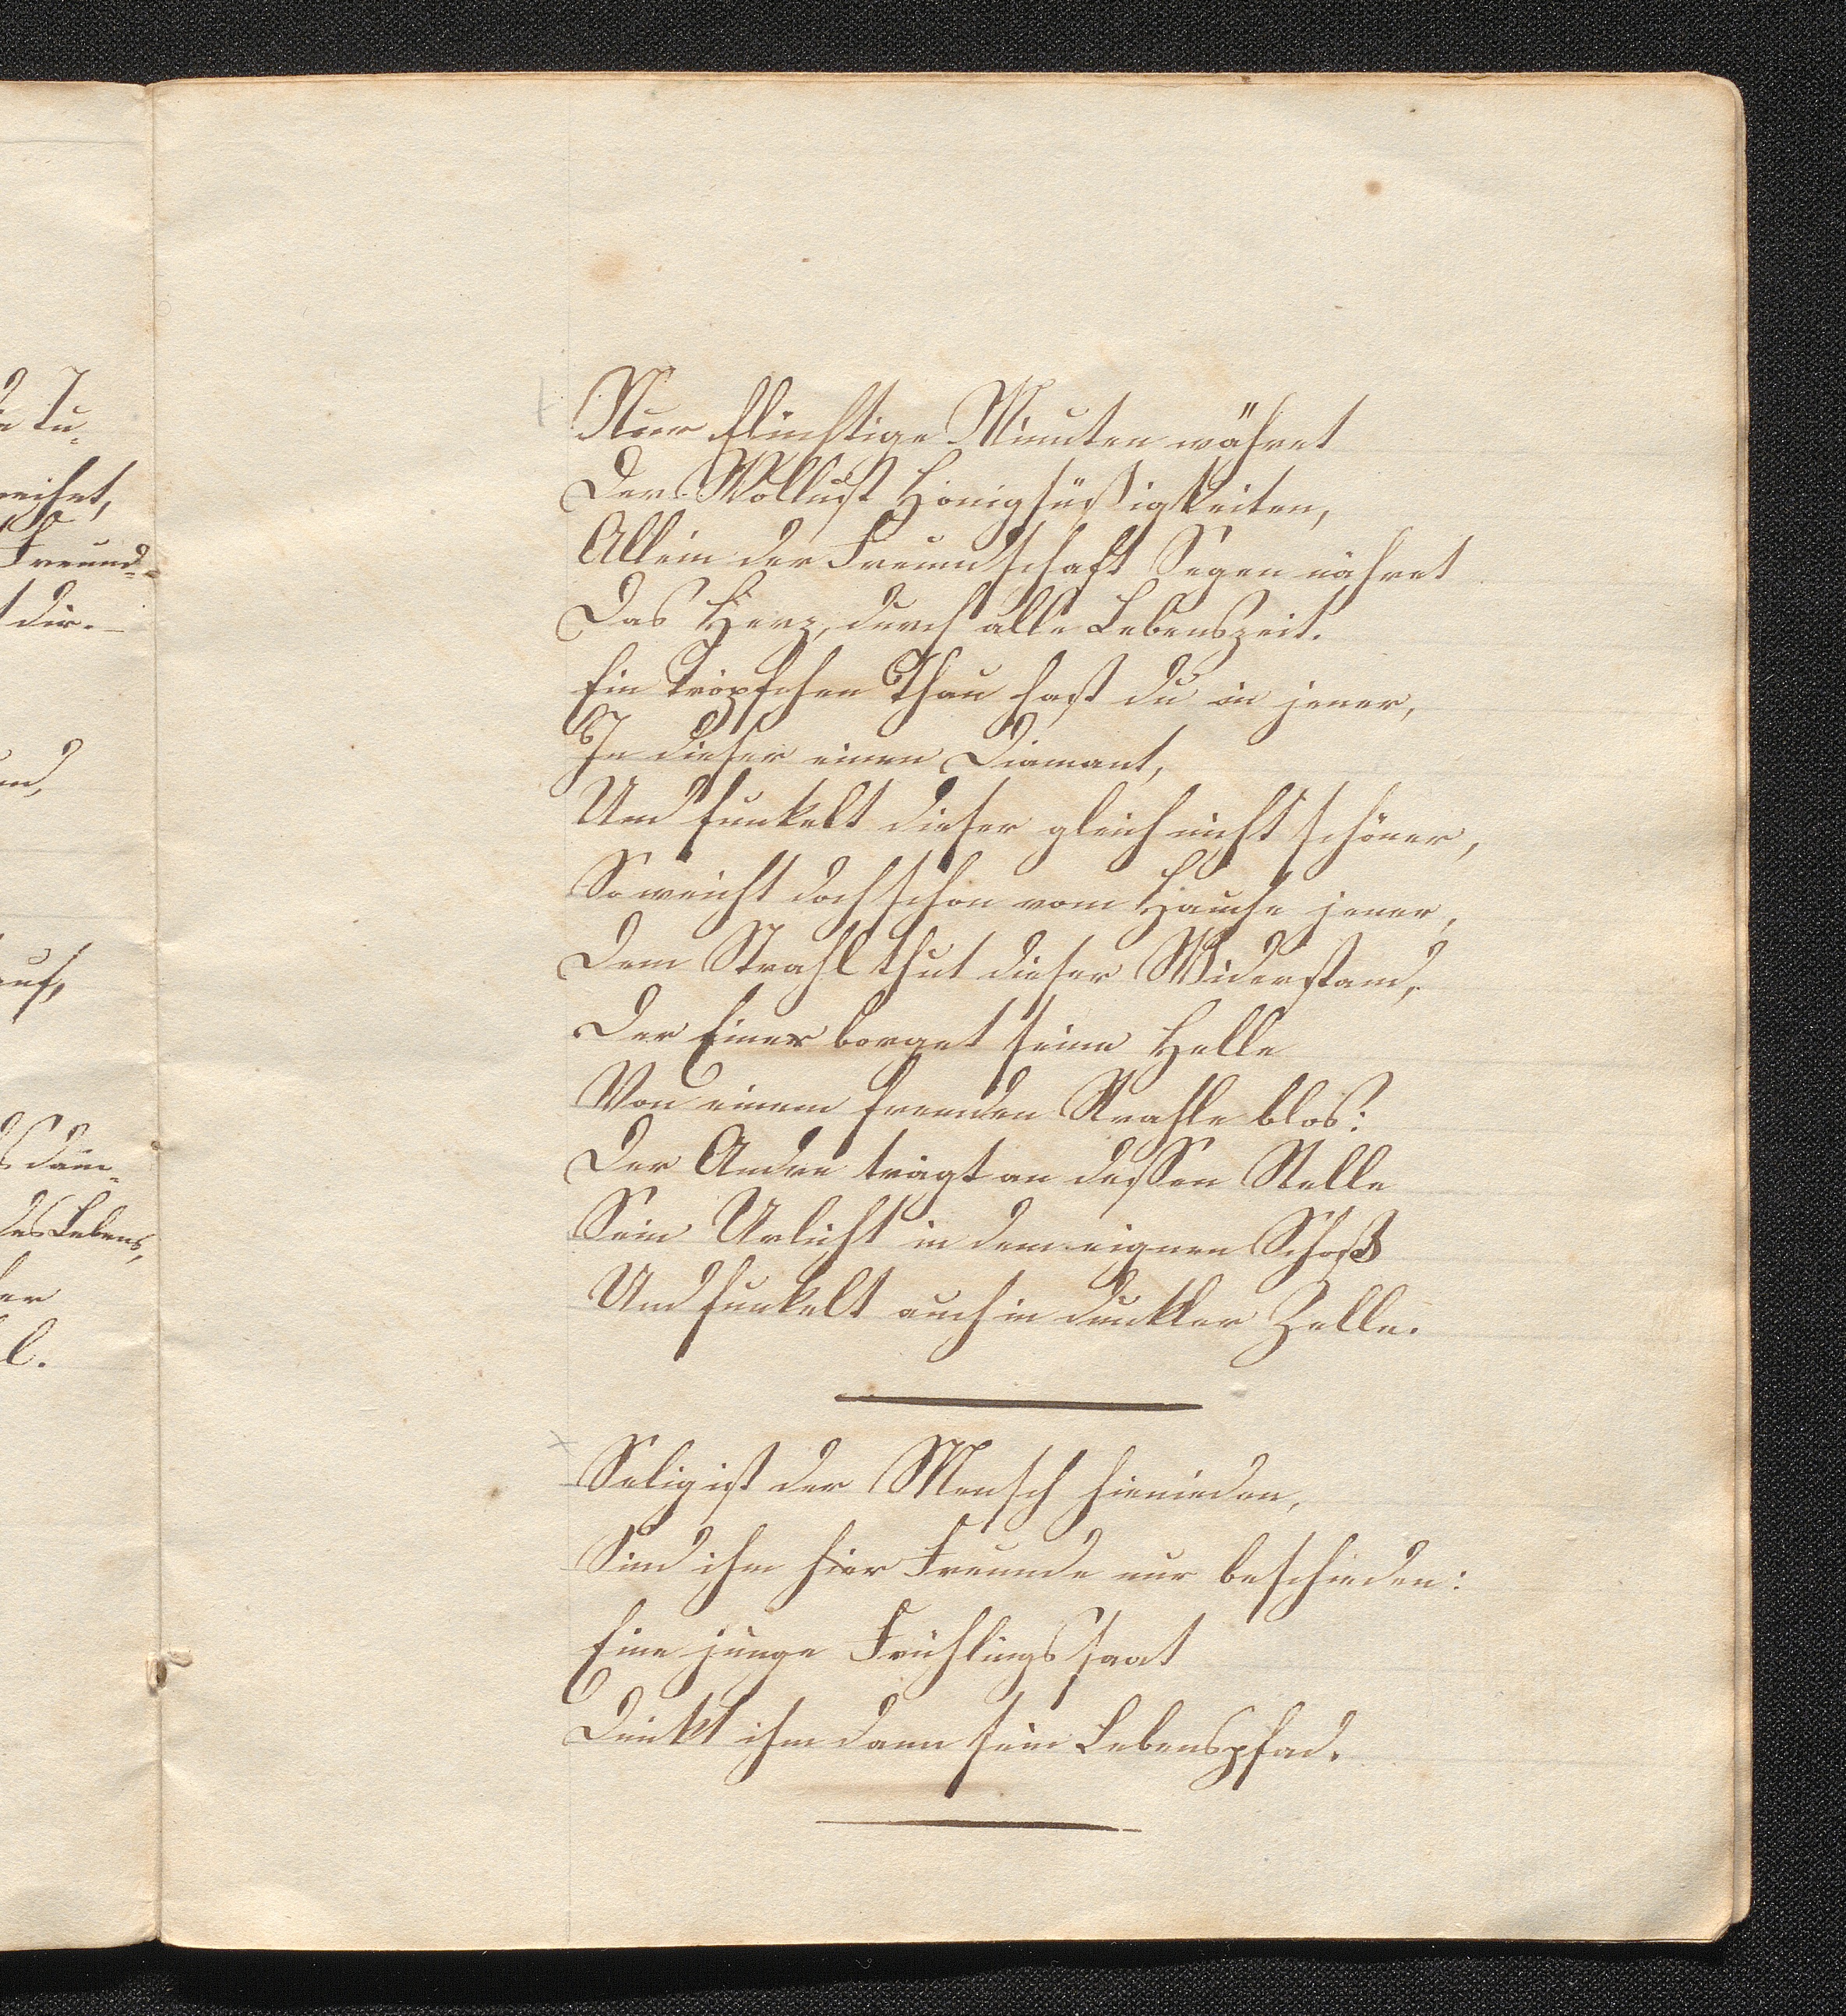 Nur flüchtige Minuten währet
Der Wollust Honigsüßigkeiten,
Allein der Freundschaft Segen nähret
Das Herz, durch alle Lebenszeit.
Ein Tröpfchen Thau hast du in jener,
In dieser einen Diamant,
Und funkelt dieser gleich nicht schöner,
So weicht doch schon vom Hauche jener,
Dem Strahl thut dieser Widerstand,
Der Einer borget seine Helle
Von einem fremden Strahle blos:
Der Andre trägt an dessen Stelle
Sein Urlicht in dem eignen Schoß
Und funkelt auch in dunkler Zelle.
Selig ist der Mensch hienieden,
Sind ihm hier Freunde nur beschieden:
Eine junge Frühlingssaat
Dünkt ihm dann sein Lebenspfad.
Freund-
dir.-
des Lebens,